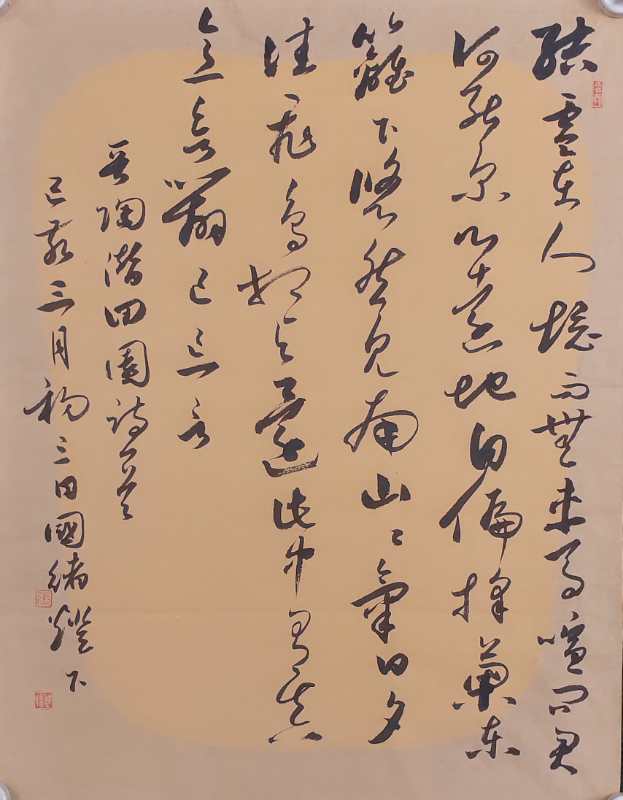 結廬在人境而無車馬喧问君
何能尔心遠地自偏採菊東
籬下悠然見南山〻氣日夕
佳飛鳥相与還此中有真
意欲辯已忘言
晋陶潛田園詩一首
己亥三月初三日國緒燈下